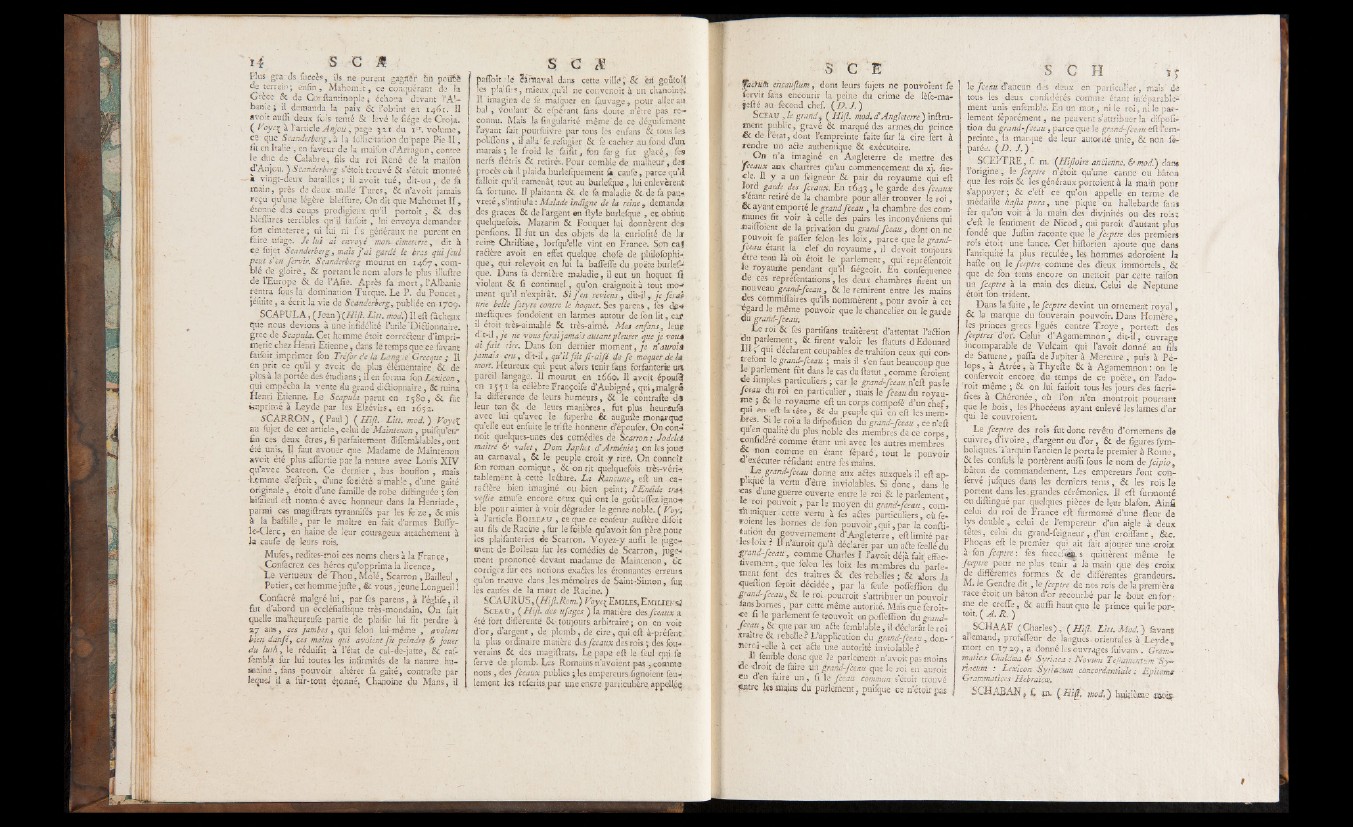 14 S C A
Plus grands succès, ils ne purent gagner un pouce
de terrein; enfin, Mahomet, ce conquérant de la
Grèce & de Constantinople, échoua devant l'Al-
banie; il demanda la paix & l'obtint en 1461. Il
avoit aussi deux fois tenté & levé le siége de Croja.
(Voyez à l'article Anjou, page 321 du 1er. volume,
ce que Scanderberg, à la sollicitation du pape Pie II,
fit en Italie, en faveur de la maison d'Arragon, contre
le duc de Calabre, fils du roi René de la maison
d'Anjou.) Scanderberg s'étoit trouvé & s'étoit montré
à vingt-deux batailles; il avoit tué, dit-on, de sa
main, près de deux mille Turcs, & n'avoit jamais
reçu qu'une légère blessure. On dit que Mahomet II,
étonné des coups prodigieux qu'il portoit, & des
blessures terribles qu'il faisoit, lui envoya demander
son cimeterre; ni lui ni ses généraux ne purent en
faire usage. Je lui ai envoyé mon cimeterre, dit à
ce sujet Scanderberg, mais j'ai gardé le bras qui seul
peut s'en servir. Scanderberg mourut en 1467, com-
blé de gloire, & portant le nom alors le plus illustre
de l'Europe & de l'Asie. Après sa mort, l'Albanie
rentra sous la domination Turque. Le P. du Poncet,
jésuite, a écrit la vie de Scanderberg, publiée en 1709.
SCAPULA, (Jean) (Hist. Litt. mod.) Il est fâcheux
que nous devions à une infidélité l'utile Dictionnaire
grec de Scapula. Cet homme étoit correcteur d'impri-
merie chez Henri Etienne, dans le temps que ce savant
faisoit imprimer son Tresor de la Langue Grecque; Il
en prit ce qu'il y avoit de plus élémentaire & de
plus à la portée des étudians; il en forma son Lexicon,
qui empêcha la vente du grand dictionnaire, & ruina
Henri Etienne. Le Scapula parut en 1580, & fut
imprimé à Leyde par les Elzévirs, en 1652.
SCARRON, (Paul) (Hist. Litt. mod.) Voyez
au sujet de cet article, celui de Maintenon, puisqu'en-
fin ces deux êtres, si parfaitement dissemblables, ont
été unis. Il faut avouer que Madame de Maintenon
avoit été plus assortie par la nature avec Louis XIV
qu'avec Scarron. Ce dernier, bas bouffon, mais
homme d'esprit, d'une société aimable, d'une gaité
originale, étoit d'une famille de robe distinguée; son
bisaieul est nommé avec honneur dans la Henriade,
parmi ces magistrats tyrannisés par les seize, & mis
à la bastille, par le maître en fait d'armes Bussy-
le-Clerc, en haine de leur courageux attachement à
la cause de leurs rois.
Muses, redites-moi ces noms chers à la France,
Consacrez ces héros qu'opprima la licence,
Le vertueux de Thou, Molé, Scarron, Bailleul,
Potier, cet homme juste, & vous, jeune Longueil!
Consacré malgré lui, par ses parens, à l'église, il
fut d'abord un ecclésiastique très-mondain. On sait
quelle malheureuse partie de plaisir lui fit perdre à
27 ans, ces jambes, qui selon lui-même, avoient
bien dansé, ces mains, qui avoient su peindre & jouer
du luth, le réduisit à l'état de cul-de-jatte, & ras-
sembla sur lui toutes les infirmités de la nature hu-
maine, sans pouvoir altérer sa gaité, contraste par
lequel il a sur-tout étonné. Chanoine du Mans, il
S C A
passoit le carnaval dans cette ville, & en goûtoit
les plaisirs, mieux qu'il ne convenoit à un chanoine.
Il imagina de se masquer en sauvage, pour aller au
bal, voulant & espérant sans doute n'être pas re-
connu. Mais la singularité même de ce déguisement
l'ayant fait poursuivre par tous les enfans & tous les
polissons, il alla se réfugier & se cacher au fond d'un
marais; le froid le saisit, son sang fut glacé, ses
nerfs flétris & retirés. Pour comble de malheur, des
procès où il plaida burlesquement sa cause, parce qu'il
falloit qu'il ramenât tout au burlesque, lui enlevèrent
sa fortune. Il plaisanta & de sa maladie & de sa pau-
vreté, s'intitula: Malade indigne de la reine, demanda
des graces & de l'argent en style burlesque, en obtint
quelquefois. Mazarin & Fouquet lui donnèrent des
pensions. Il fut un des objets de la curiosité de la
reine Christine, lorsqu'elle vint en France. Son ca-
ractère avoit en effet quelque chose de philosophi-
que, qui relevoit en lui la bassesse du poëte burles-
que. Dans sa dernière maladie, il eut un hoquet si
violent & si continuel, qu'on craignoit à tout mo-
ment qu'il n'expirât. Si j'en reviens, dit-il, je ferai
une belle satyre contre le hoquet. Ses parens, ses do-
mestiques fondoient en larmes autour de son lit, car
il étoit très-aimable & très-aimé. Mes enfans, leur
dit-il, je ne vous ferai jamais autant pleurer que je vous
ai fait rire. Dans son dernier moment, je n'aurois
jamais cru, dit-il, qu'il fût si aisé de se moquer de la
mort. Heureux qui peut alors tenir sans forfanterie un
pareil langage. Il mourut en 1660. Il avoit épousé
en 1651 la célèbre Françoise d'Aubigné, qui, malgré
la différence de leurs humeurs, & le contraste de
leur ton & de leurs manières, fut plus heureuse
avec lui qu'avec le superbe & auguste monarque
qu'elle eut ensuite le triste honneur d'épouser. On con-
noît quelques-unes des comédies de Scarron: Jodelet
maître & valet, Dom Japhet d'Arménie; on les joue
au carnaval, & le peuple croit y rire. On connoît
son roman comique, & on rit quelquefois très-véri-
tablement à cette lecture. La Rancune, est un ca-
ractère bien imaginé ou bien peint; l'Enéide tra-
vestie amuse encore ceux qui ont le goût assez igno-
ble pour aimer à voir dégrader le genre noble. (Voyez
à l'article BOILEAU, ce que ce censeur austère disoit
au fils de Racine, sur le foible qu'avoit son père pour
les plaisanteries de Scarron. Voyez-y aussi le juge-
ment de Boileau sur les comédies de Scarron, juge-
ment prononcé devant madame de Maintenon, &
corrigez sur ces notions exactes les étonnantes erreurs
qu'on trouve dans les mémoires de Saint-Simon, sur
les causes de la mort de Racine.)
SCAURUS, (Hist. Rom.) Voyez EMILES, EMILIENS.
SCEAU, (Hist. des usages) la matière des sceaux a
été fort différente & toujours arbitraire; on en voit
d'or, d'argent, de plomb, de cire, qui est à-présent
la plus ordinaire manière des sceaux des rois; des sou-
verains & des magistrats. Le pape est le seul qui se
serve de plomb. Les Romains n'avoient pas, comme
nous, des sceaux publics; les empereurs signoient seu-
lement les rescrits par une encre particulière appellée
S C E
sacrum encaustum, dont leurs sujets ne pouvoient se
servir sans encourir la peine du crime de lèse-ma-
jesté au second chef. (D. J.)
SCEAU, le grand, (Hist. mod. d'Angleterre) instru-
ment public, gravé & marqué des armes du prince
& de l'état, dont l'empreinte faite sur la cire sert à
rendre un acte authentique & exécutoire.
On n'a imaginé en Angleterre de mettre des
sceaux aux chartres qu'au commencement du xj. siè-
cle. Il y a un seigneur & pair du royaume qui est
lord garde des sceaux. En 1643, le garde des sceaux
s'étant retiré de la chambre pour aller trouver le roi,
& ayant emporté le grand sceau, la chambre des com-
munes fit voir à celle des pairs les inconvéniens qui
naissoient de la privation du grand sceau, dont on ne
pouvoit se passer selon les loix, parce que le grand-
sceau étant la clef du royaume, il devoit toujours
être tenu là où étoit le parlement, qui représentoit
le royaume pendant qu'il siégeoit. En conséquence
de ces représentations, les deux chambres firent un
nouveau grand-sceau, & le remirent entre les mains
des commissaires qu'ils nommèrent, pour avoir à cet
égard le même pouvoir que le chancelier ou le garde
du grand-sceau.
Le roi & ses partisans traitèrent d'attentat l'action
du parlement, & firent valoir les statuts d'Edouard
III, qui déclarent coupables de trahison ceux qui con-
trefont le grand-sceau; mais il s'en faut beaucoup que
le parlement fût dans le cas du statut, comme seroient
de simples particuliers; car le grand-sceau n'est pas le
sceau du roi en particulier, mais le sceau du royau-
me; & le royaume est un corps composé d'un chef,
qui en est la tête, & du peuple qui en est les mem-
bres. Si le roi a la disposition du grand-sceau, ce n'est
qu'en qualité du plus noble des membres de ce corps,
considéré comme étant uni avec les autres membres
& non comme en étant séparé, tout le pouvoir
d'exécuter résidant entre ses mains.
Le grand-sceau donne aux actes auxquels il est ap-
pliqué la vertu d'être inviolables. Si donc, dans le
cas d'une guerre ouverte entre le roi & le parlement,
le roi pouvoit, par le moyen du grand-sceau, com-
muniquer cette vertu à ses actes particuliers, où se-
roient les bornes de son pouvoir, qui, par la consti-
tution du gouvernement d'Angleterre, est limité par
les loix? Il n'auroit qu'à déclarer par un acte scellé du
grand-sceau, comme Charles I l'avoit déjà fait effec-
tivement, que selon les loix les membres du parle-
ment sont des traîtres & des rebelles; & alors la
question seroit décidée, par la seule possession du
grand-sceau, & le roi pourroit s'attribuer un pouvoir
sans bornes, par cette même autorité. Mais que feroit-
ce si le parlement se trouvoit en possession du grand-
sceau, & que par un acte semblable, il déclarât le roi
traître & rebelle? L'application du grand-sceau, don-
neroit-elle à cet acte une autorité inviolable?
Il semble donc que le parlement n'avoit pas moins
de droit de faire un grand-sceau que le roi en auroit
eu d'en faire un, si le sceau commun s'étoit trouvé
entre les mains du parlement, puisque ce n'étoit pas
S C H 15
le sceau d'aucun des deux en particulier, mais de
tous les deux considérés comme étant inséparable-
ment unis ensemble. En un mot, ni le roi, ni le par-
lement séparément, ne peuvent s'attribuer la disposi-
tion du grand-sceau, parce que le grand-sceau est l'em-
preinte, la marque de leur autorité unie, & non sé-
parée. (D. J.)
SCEPTRE, s. m. (Histoire ancienne, & mod.) dans
l'origine, le sceptre n'étoit qu'une canne ou bâton
que les rois & les généraux portoient à la main pour
s'appuyer; & c'est ce qu'on appelle en terme de
médaille hasta pura, une pique ou hallebarde sans
fer qu'on voit à la main des divinités ou des rois:
c'est le sentiment de Nicod, qui paroît d'autant plus
fondé que Justin raconte que le sceptre des premiers
rois étoit une lance. Cet historien ajoute que dans
l'antiquité la plus reculée, les hommes adoroient la
haste ou le sceptre comme des dieux immortels, &
que de son tems encore on mettoit par cette raison
un sceptre à la main des dieux. Celui de Neptune
étoit son trident.
Dans la suite, le sceptre devint un ornement royal,
& la marque du souverain pouvoir. Dans Homère,
les princes grecs ligués contre Troye, portent des
sceptres d'or. Celui d'Agamemnon, dit-il, ouvrage
incomparable de Vulcain qui l'avoit donné au fils
de Saturne, passa de Jupiter à Mercure, puis à Pé-
lops, à Atrée, à Thyeste & à Agamemnon: on le
conservoit encore du temps de ce poëte, on l'ado-
roit même; & on lui faisoit tous les jours des sacri-
fices à Chéronée, où l'on n'en montroit pourtant
que le bois, les Phocéens ayant enlevé les lames d'or
qui le couvroient.
Le sceptre des rois fut donc revêtu d'ornemens de
cuivre, d'ivoire, d'argent ou d'or, & de figures sym-
boliques. Tarquin l'ancien le porta le premier à Rome,
& les consuls le portèrent aussi sous le nom de scipio,
bâton de commandement. Les empereurs l'ont con-
servé jusques dans les derniers tems, & les rois le
portent dans les grandes cérémonies. Il est surmonté
ou distingué par quelques pièces de leur blason. Ainsi
celui du roi de France est surmonté d'une fleur de
lys double, celui de l'empereur d'un aigle à deux
têtes, celui du grand-seigneur, d'un croissant, &c.
Phocas est le premier qui ait fait ajouter une croix
à son sceptre: ses successeurs quittèrent même le
sceptre pour ne plus tenir à la main que des croix
de différentes formes & de différentes grandeurs.
M. le Gendre dit, le sceptre de nos rois de la première
race étoit un bâton d'or recourbé par le bout en for-
me de crosse, & aussi haut que le prince qui le por-
toit. (A. R.)
SCHAAF (Charles), (Hist. Litt. Mod.) savant
allemand, professeur de langues orientales à Leyde,
mort en 1729, a donné les ouvrages suivans. Gram-
matica Chaldaica & Syriaca: Novum Testamentum Sy-
riacum: Lexicon Syriacum concordantiale: Epitome
Grammatices Hebraicæ.
SCHABAN, s. m. (Hist. mod.) huitième mois